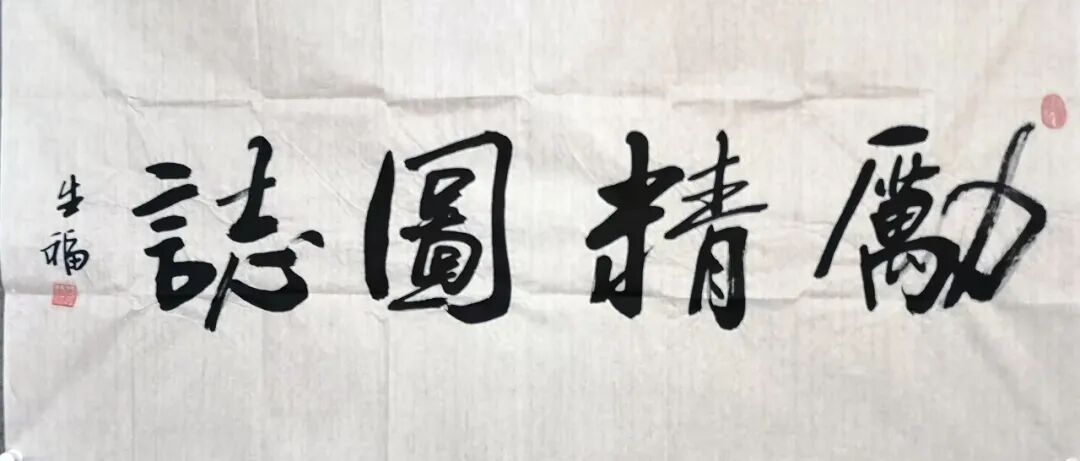 勵精圖誌
生福